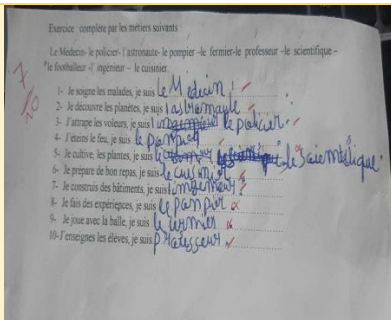 Exercice : complète par les métiers suivants
Le Médecin- le policier- l'astronaute- le pompier -le fermier-le professeur –le scientifique –
le footballeur –l' ingénieur – le cuisinier
7/10
1- Je soigne les malades, je suis le Médecin
2- Je découvre les planètes, je suis l'astronaute
3- J'attrape les voleurs, je suis le policier
4- J'éteins le feu, je suis le pompier
5- Je cultive, les plantes, je suis le scientifique
6- Je prépare de bon repas, je suis le cuisinier
7- Je construis des bâtiments, je suis l'ingénieur
8- Je fais des expériences, je suis le pompier
9- Je joue avec la balle, je suis le fermier
10- J'enseignes les élèves, je suis professeur